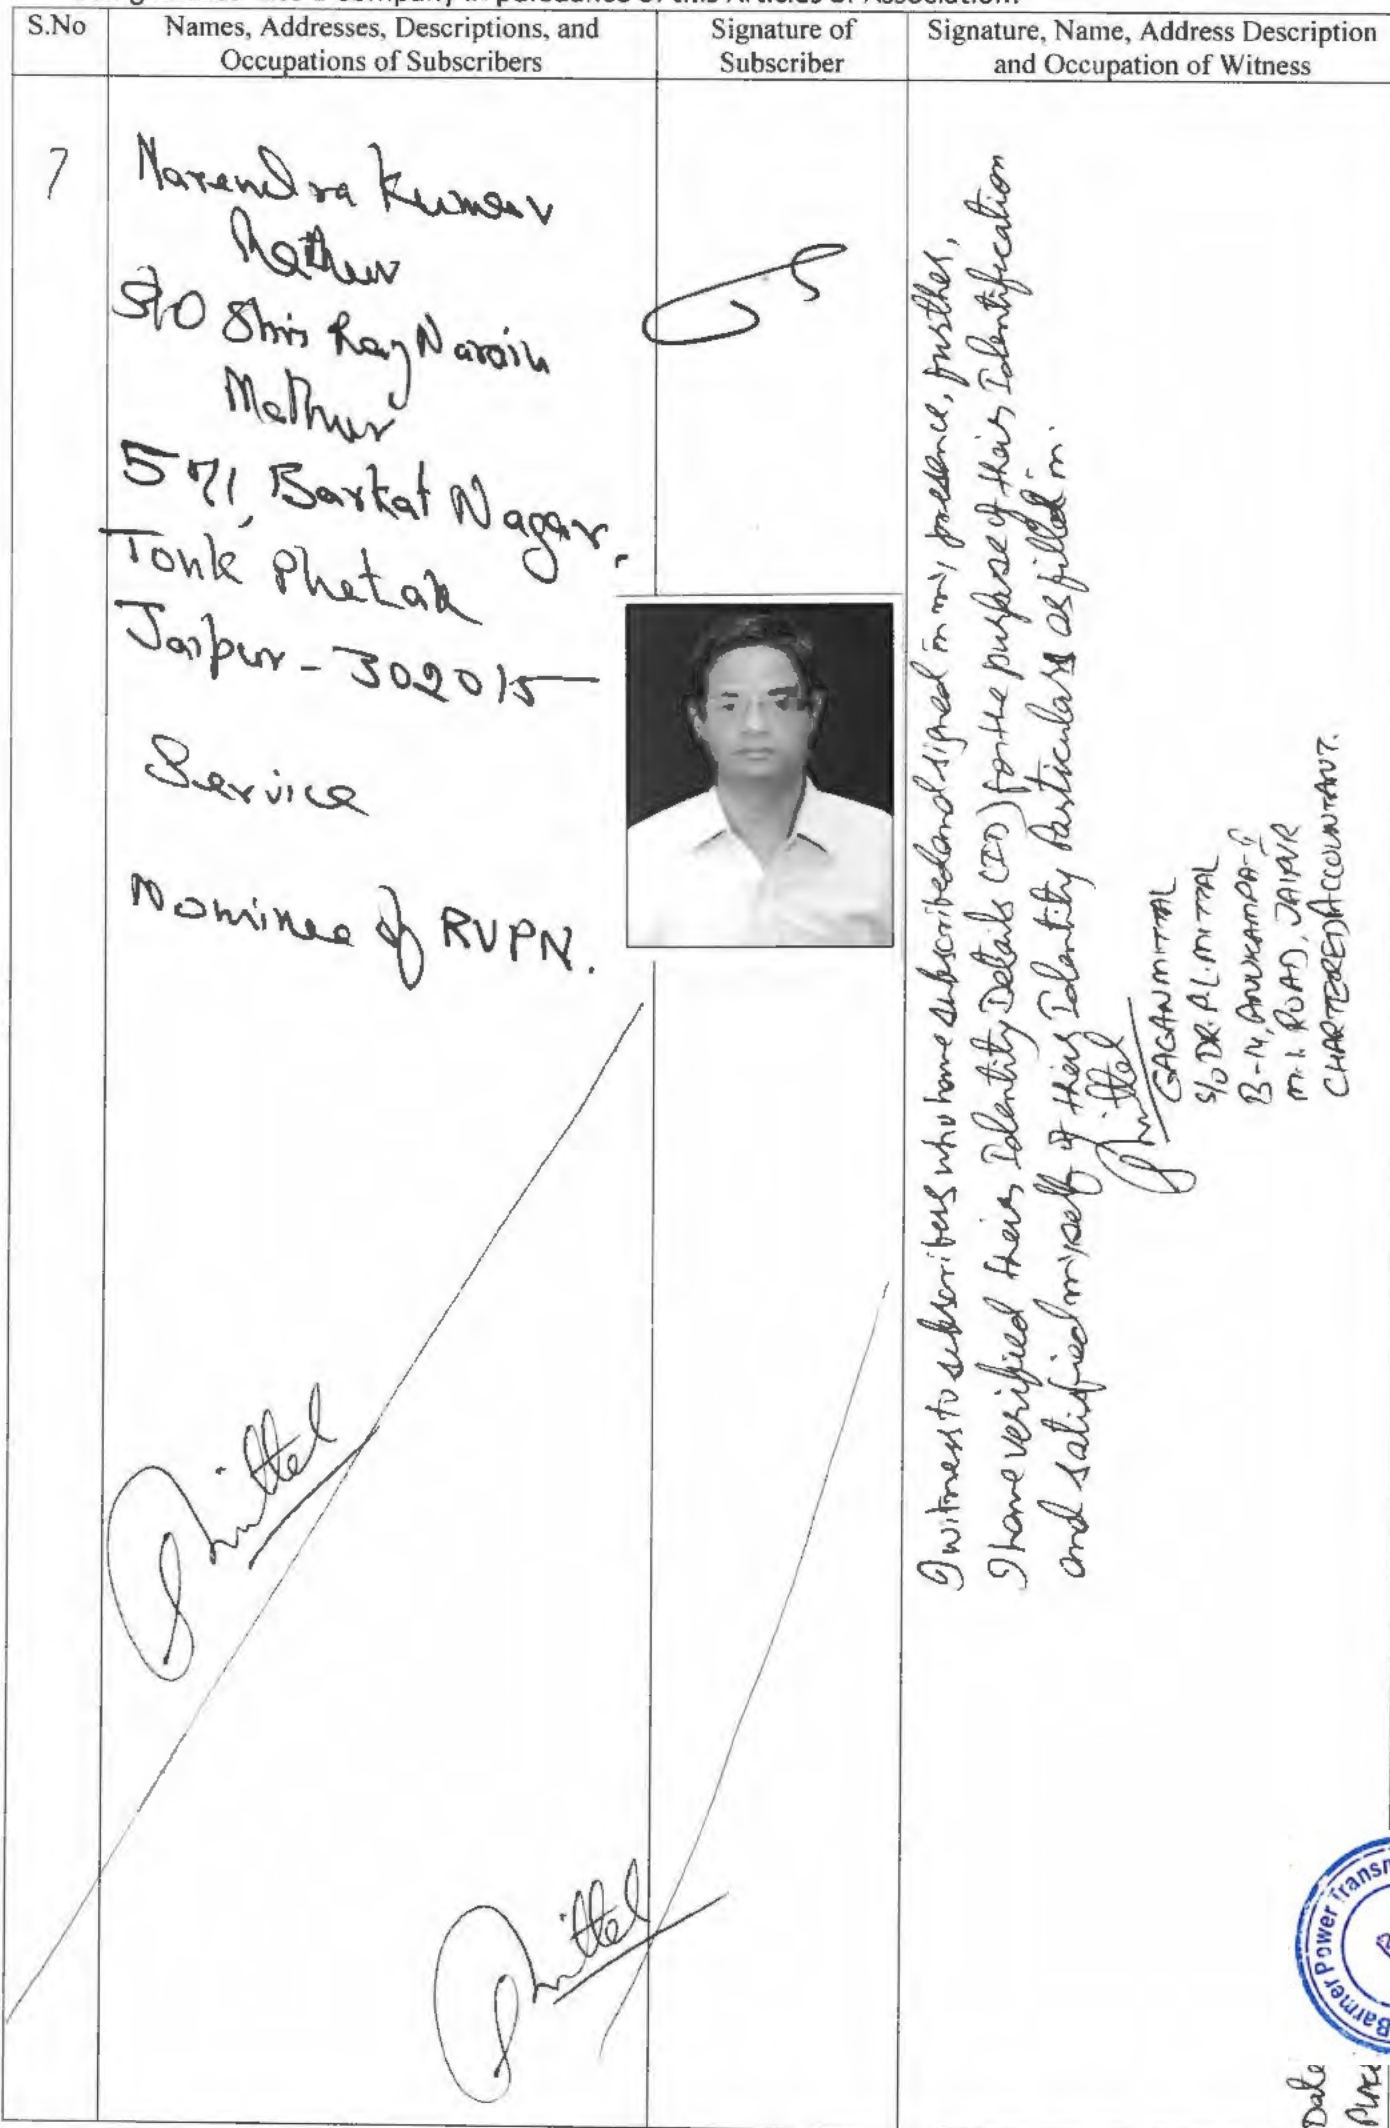 S.No
Names, Addresses, Descriptions, and
Occupations of Subscribers
Signature of
Subscriber
Signature, Name, Address Description
and Occupation of Witness
7
Narendra Kumar
Mathur
S/O Shri Raj Narain
Mathur
571, Barkat Nagar,
Tonk Phatak
Jaipur - 302015
Service
Nominee of RVPN.
I witness to subscribers who have subscribed and signed in my presence, further,
I have verified their Identity Details (ID) for the purpose of their Identification
and satisfied myself of their Identity Particulars as filled in.
Mittal
GAGAN MITTAL
S/O DR. P.L. MITTAL
B-14, ANUKAMPA-
M.I. ROAD, JAIPUR
CHARTERED ACCOUNTANT.
Mittal
Mittal
Barmer Power Transm
Date
Place